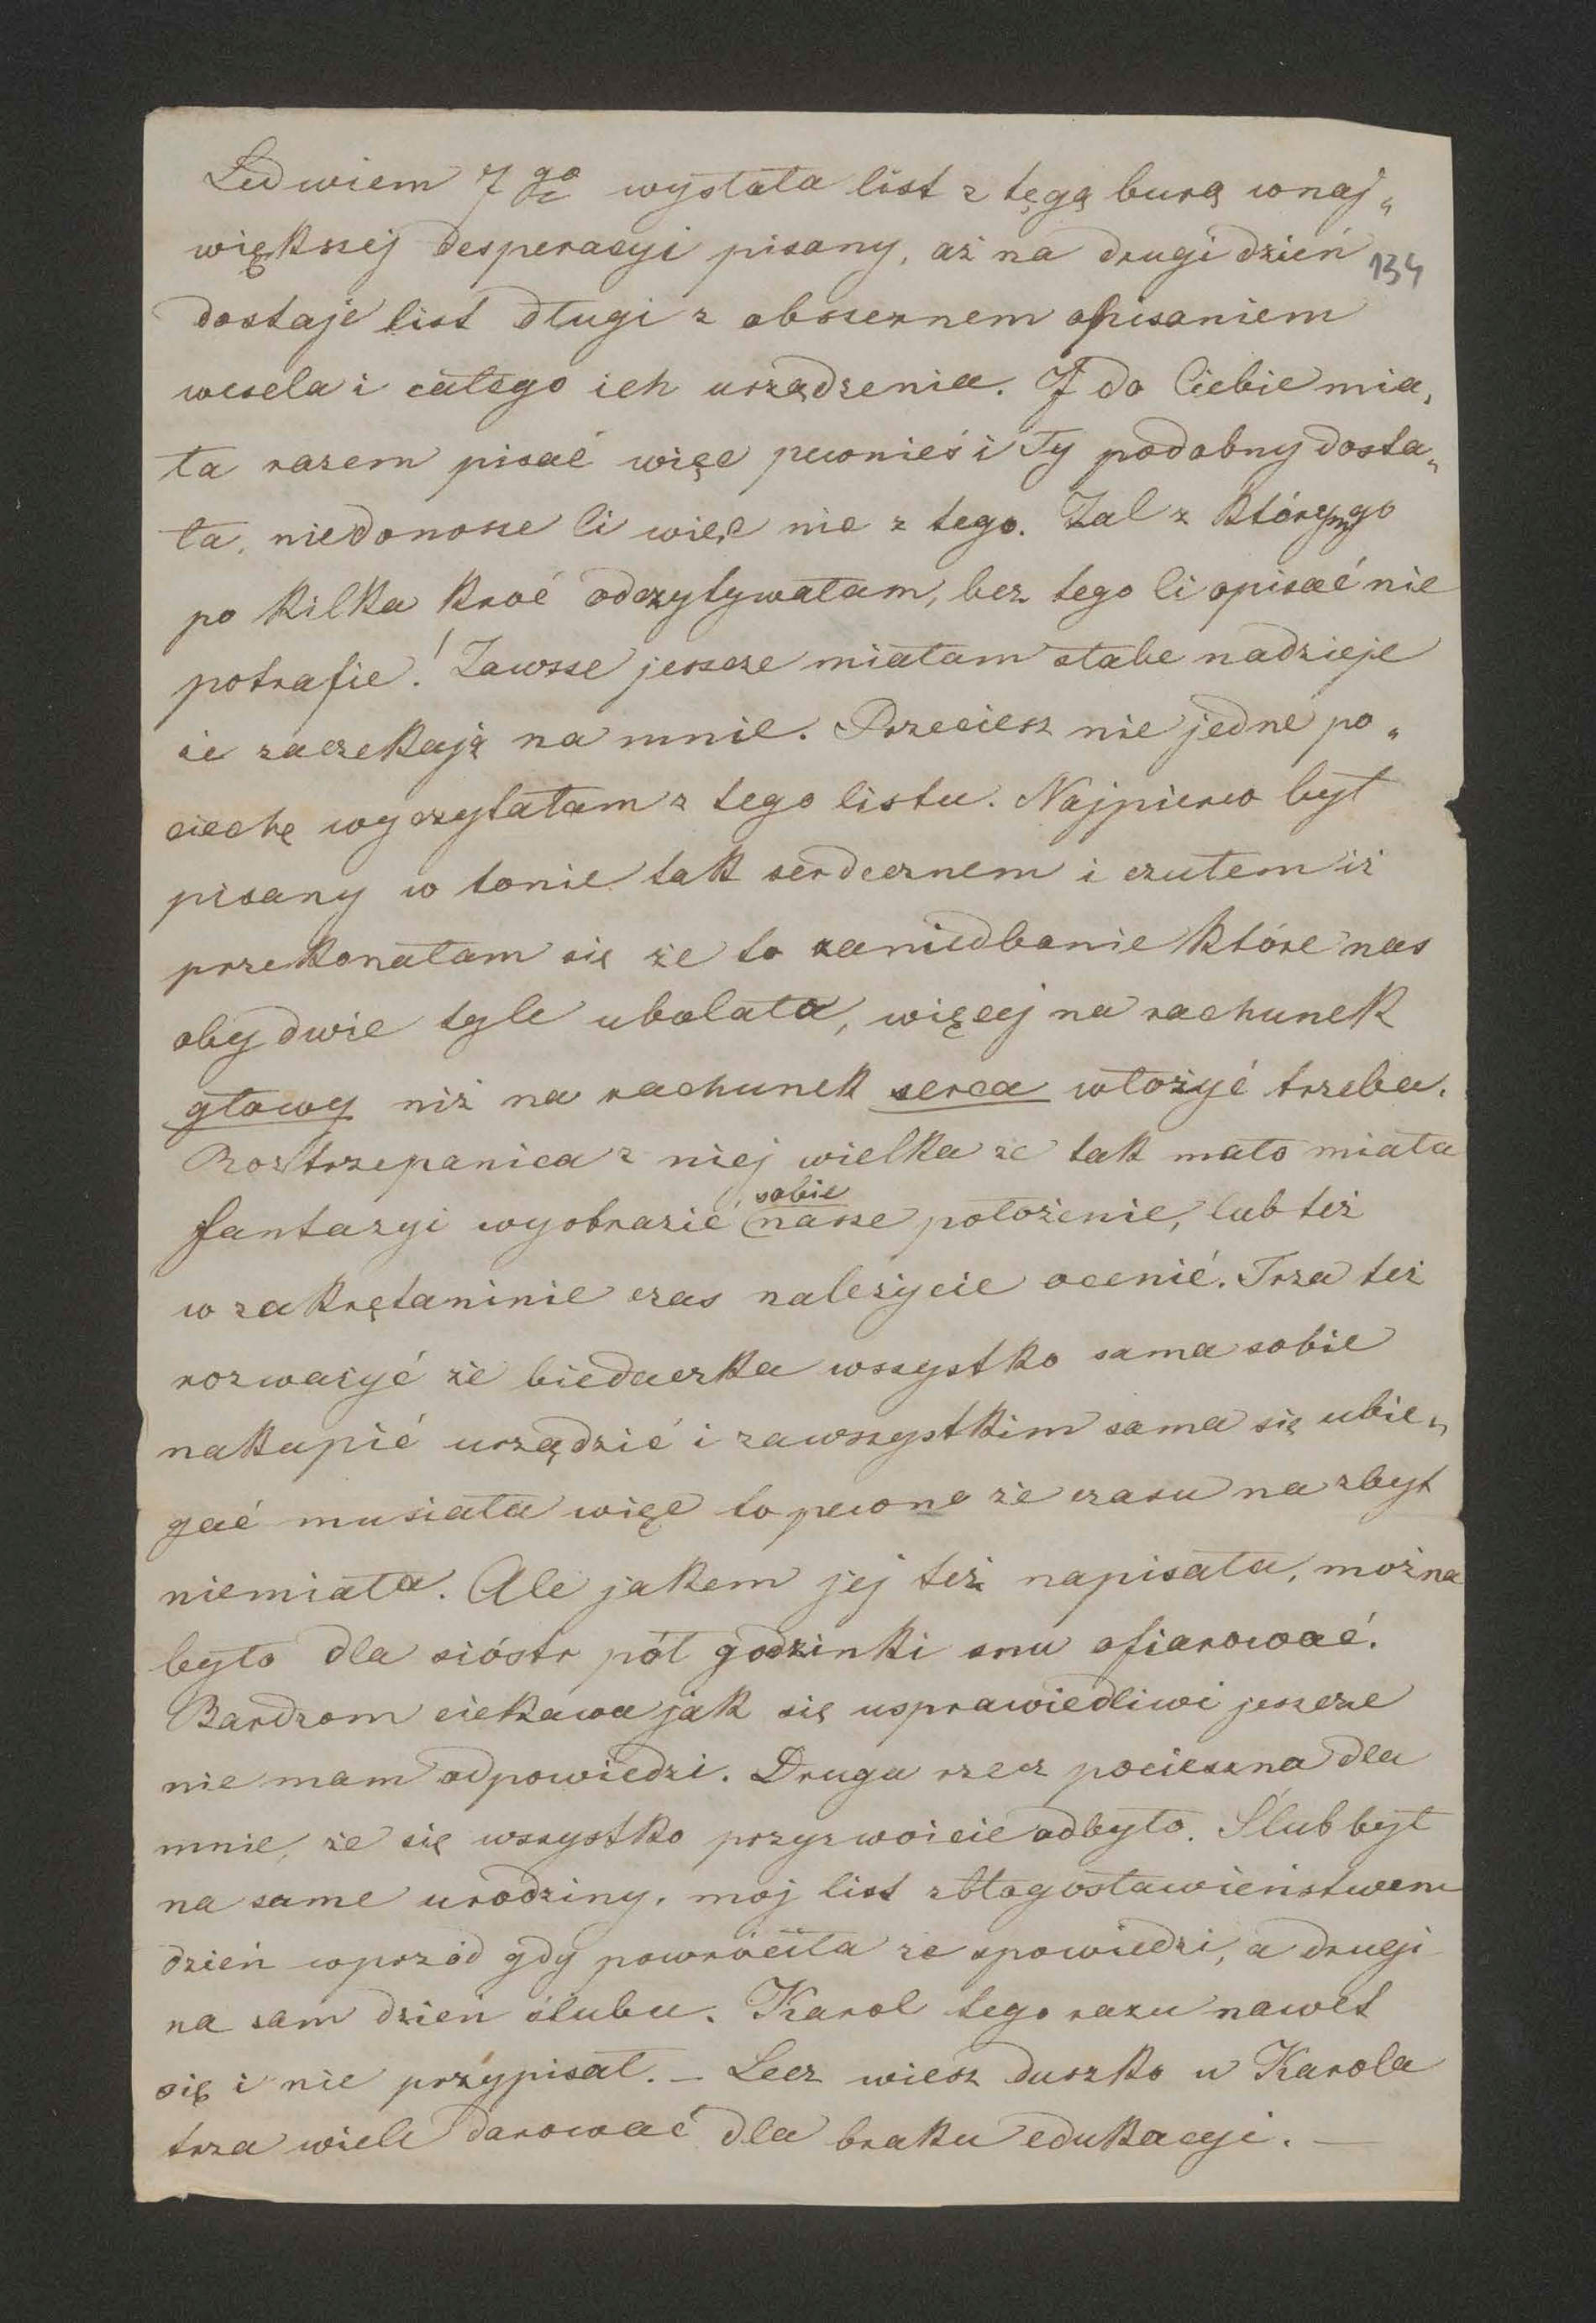 Ledwiem 7go wysłała list z tęgą burą wnaj„
większej desperacyi pisany, aż na drugi dzień
134
dostaje list długi z obszernem opisaniem
wesela i całego ich urządzenia. I do Ciebie mia„
ła razem pisać więc pewnieś i Ty podobny dosta„
ła, niedonosze Ci więc nic z tego. Żal z którym go
po kilka kroć odczytywałam, bez tego Ci opisać nie
potrafie! Zawsze jeszcze miałam słabe nadzieje
że zaczekają na mnie. Przeciesz nie jedne po„
ciechę wyczytałam z tego listu. Najpierw był
pisany w tonie tak serdecznem i czułem iż
przekonałam się że to zaniedbanie które nas
obydwie tyle ubolało, więcej na rachunek
głowy niż na rachunek serca włożyć trzeba.
Roztrzepanica z niej wielka że tak mało miała
fantazyi wyobrazić sobie nasze położenie, lub też
w zakrętaninie czas należycie ocenić. Trza też
rozważyć że biedaczka wszystko sama sobie
nakupić urządzić i zawszystkim sama się ubie„
gać musiała więc to pewne że czasu na zbyt
niemiała. Ale jakem jej też napisała, można
było dla sióstr pół godzinki snu ofiarować.
Bardzom ciekawa jak się usprawiedliwi jeszcze
nie mam odpowiedzi. Druga rzecz pocieszna dla
mnie, że się wszystko przyzwoicie odbyło. Ślub był
na same urodziny, moj list zbłogosławieństwem
dzień wprzód gdy powróciła ze spowiedzi, a drugi
na sam dzien ślubu. Karol tego razu nawet
się i nie przypisał. – Lecz wiesz duszko u Karola
trza wiele darować dla braku edukacyi. —